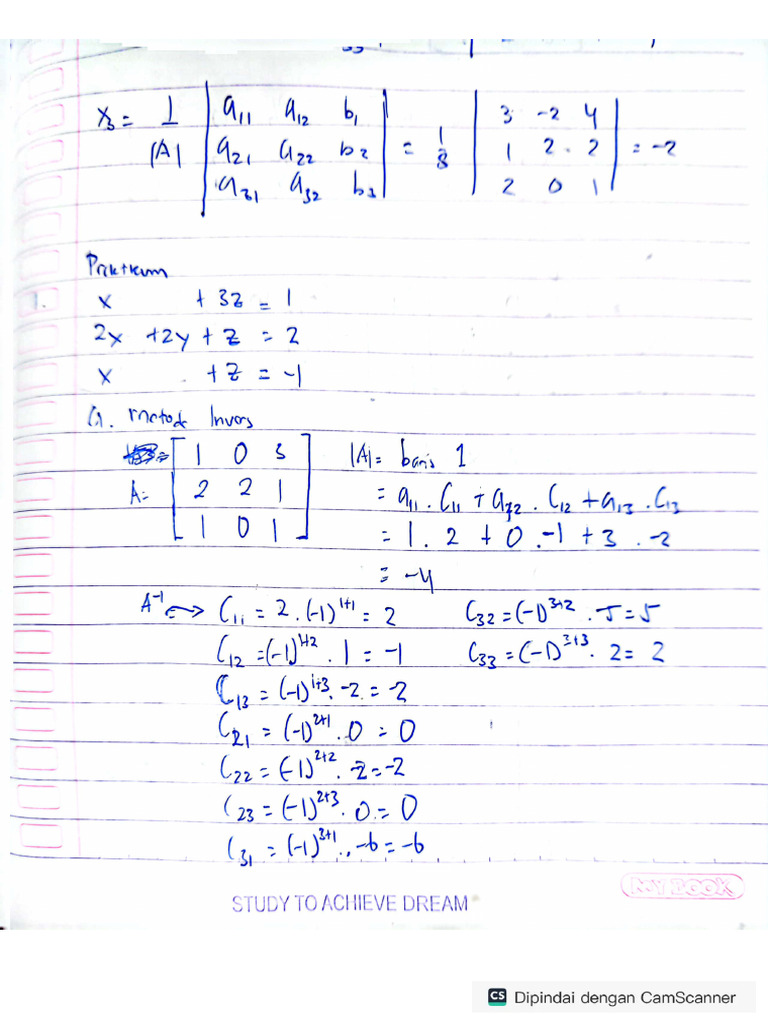 x₃ = 1/|A| |a₁₁ a₁₂ b₁| = 1/8 |3 -2 4| = -2
|a₂₁ a₂₂ b₂| |1 2 2|
|a₃₁ a₃₂ b₃| |2 0 1|
Praktikum
1. x + 3z = 1
2x + 2y + z = 2
x + z = -1
a. metode Invers
A = [1 0 3] |A| = baris 1
[2 2 1] = a₁₁ . C₁₁ + a₁₂ . C₁₂ + a₁₃ . C₁₃
[1 0 1] = 1 . 2 + 0 . -1 + 3 . -2
= -4
A⁻¹ → C₁₁ = 2 . (-1)¹⁺¹ = 2 C₃₂ = (-1)³⁺² . 5 = 5
C₁₂ = (-1)¹⁺² . 1 = -1 C₃₃ = (-1)³⁺³ . 2 = 2
C₁₃ = (-1)¹⁺³ . -2 = -2
C₂₁ = (-1)²⁺¹ . 0 = 0
C₂₂ = (-1)²⁺² . -2 = -2
C₂₃ = (-1)²⁺³ . 0 = 0
C₃₁ = (-1)³⁺¹ . -6 = -6
MY BOOK
STUDY TO ACHIEVE DREAM
CS Dipindai dengan CamScanner